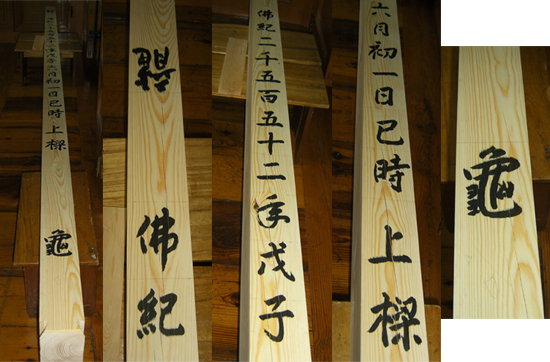 二千五百五十二年戊子六月初一日巳時上樑
龜
龍
佛紀
佛紀二千五百五十二年戊子
六月初一日巳時上樑
龜